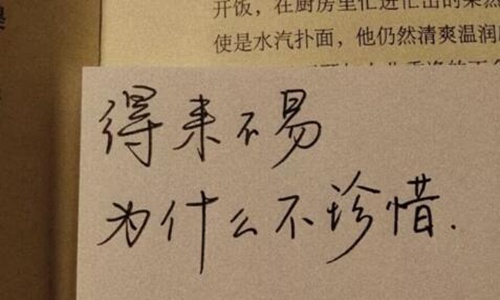 开饭，在厨房里忙进忙出的梁然
使是水汽扑面，他仍然清爽温润
得来不易
为什么不珍惜.